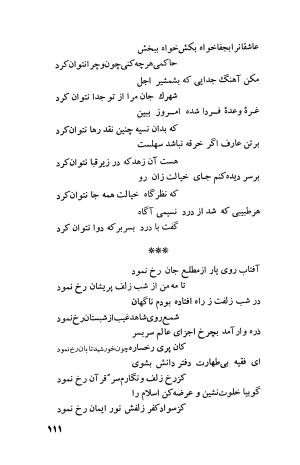 عاشقانرا بجفا خواه بکش خواه ببخش
حاکمی هرچه کنی چون و چرا نتوان کرد
مکن آهنگ جدایی که بشمشیر اجل
شهرك جان مرا از تو جدا نتوان کرد
غرهٔ وعدهٔ فردا شده امروز ببین
که بدان نسیه چنین نقد رها نتوان کرد
برتن عارف اگر خرقه نباشد سهلست
هست آن زهد که در زیر قبا نتوان کرد
برسر دیده کنم جای خیالت زان رو
که نظرگاه خیالت همه جا نتوان کرد
هر طبیبی که شد از درد نسیمی آگاه
گفت با درد بسر بر که دوا نتوان کرد
***
آفتاب روی یار از مطلع جان رخ نمود
تا مه من از شب زلف پریشان رخ نمود
در شب زلفت ز راه افتاده بودم ناگهان
شمع روی شاهد غیب از شبستان رخ نمود
ذره وار آمد بچرخ اجزای عالم سربسر
کان پری رخساره چون خورشید تابان رخ نمود
ای فقیه بی طهارت دفتر دانش بشوی
کز رخ زلف و نگارم سرّ قرآن رخ نمود
گو بیا خلوت نشین و عرضه کن اسلام را
کز سواد کفر زلفش نور ایمان رخ نمود
۱۱۱